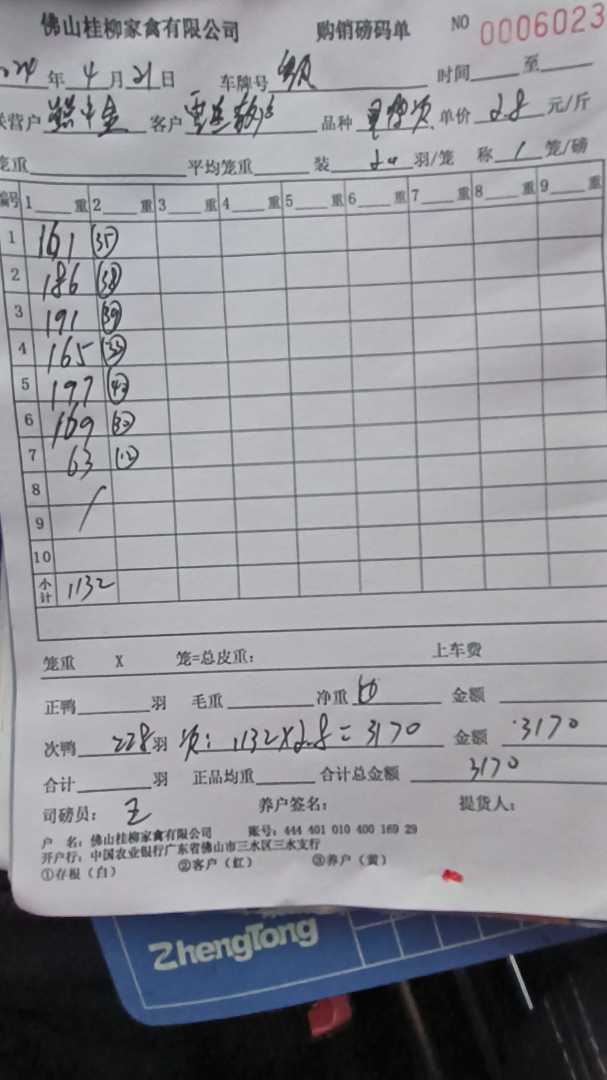 佛山桂柳家禽有限公司 购销磅码单 NO 0006023
024年4月21日 车牌号 时间 至
营户 客户 品种 单价 2.8 元/斤
笼重 平均笼重 装 羽/笼 称 1 笼/磅
编号 1 重 2 重 3 重 4 重 5 重 6 重 7 重 8 重 9 重
1 161 (35)
2 186 (38)
3 191 (39)
4 165
5 197
6 169
7 63 (12)
8
9
10
小计 1132
笼重 X 笼=总皮重: 上车费
正鸭 羽 毛重 净重 金额
次鸭 228 羽 次: 1132X2.8=3170 金额 3170
合计 羽 正品均重 合计总金额 3170
司磅员: 王 养户签名: 提货人:
户 名: 佛山桂柳家禽有限公司 账号: 444 401 010 400 169 29
开户行: 中国农业银行广东省佛山市三水区三水支行
①存根(白) ②客户(红) ③养户(黄)
ZhengTong